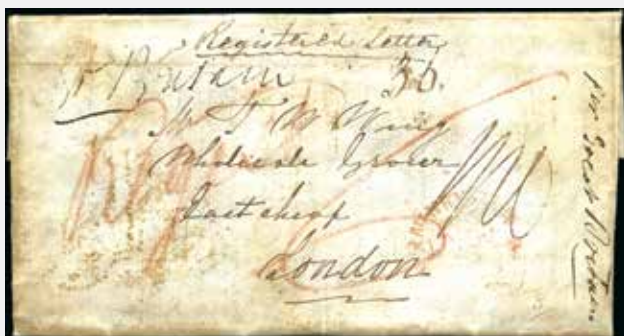 Registered Letter
Gt Britain 36.
Mr T W
Wholesale Grocer
Eastcheap
London
per Great Britain